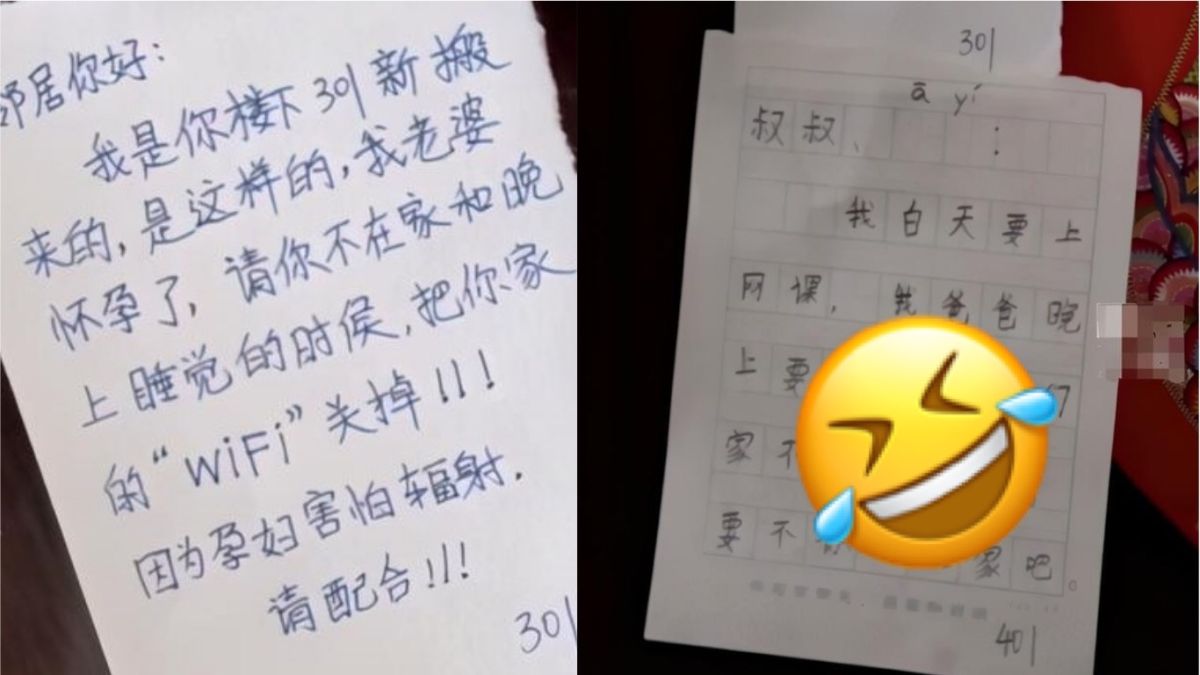 邻居你好:
我是你楼下301新搬
来的,是这样的,我老婆
怀孕了,请你不在家和晚
上睡觉的时侯,把你家
的“WiFi”关掉!!!
因为孕妇害怕辐射.
请配合!!!
301
301
ā yí
叔叔、 :
我白天要上
网课,我爸爸晚
上要
家不
要不 家吧。
401